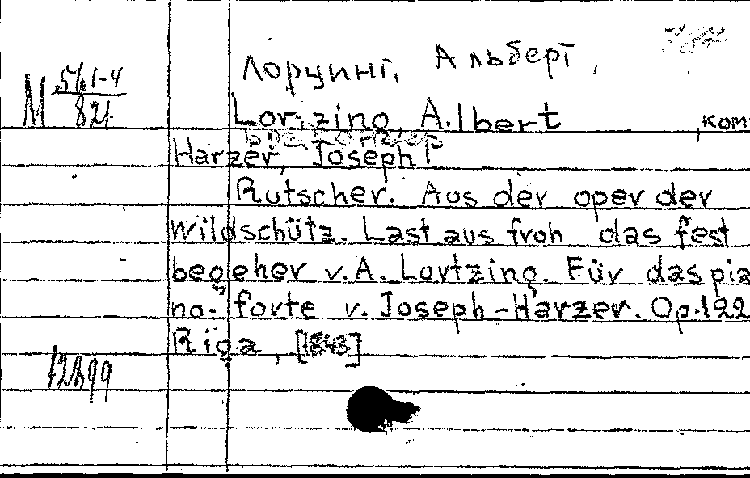 Лорцинг, Альберт,
М 561-4/821
Lortzing, Albert, ком
Harzer, Joseph
Rutscher. Aus der oper der
Wildschütz. Last aus froh das fest
begeher v. A. Lortzing. Für das pia
no-forte v. Joseph-Harzer. Op. 122
Riga, [1843]
12899